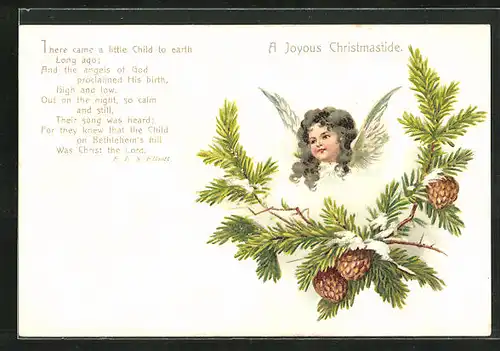 There came a little Child to earth
Long ago;
And the angels of God
proclaimed His birth,
High and low.
Out on the night, so calm
and still,
Their song was heard;
For they knew that the Child
on Bethlehem's hill
Was Christ the Lord.
E. E. S. Elliott
A Joyous Christmastide.